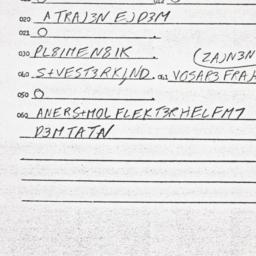 020 ATRAJ3N EJD3M
021 O
030 PL8IMEN8IK (ZAJN3N
040 S+VEST3RKIND. 041 VOSAP3 FRAH
050 O
060 ANERS+MOL FLEKT3RHELFM7
D3MTATN